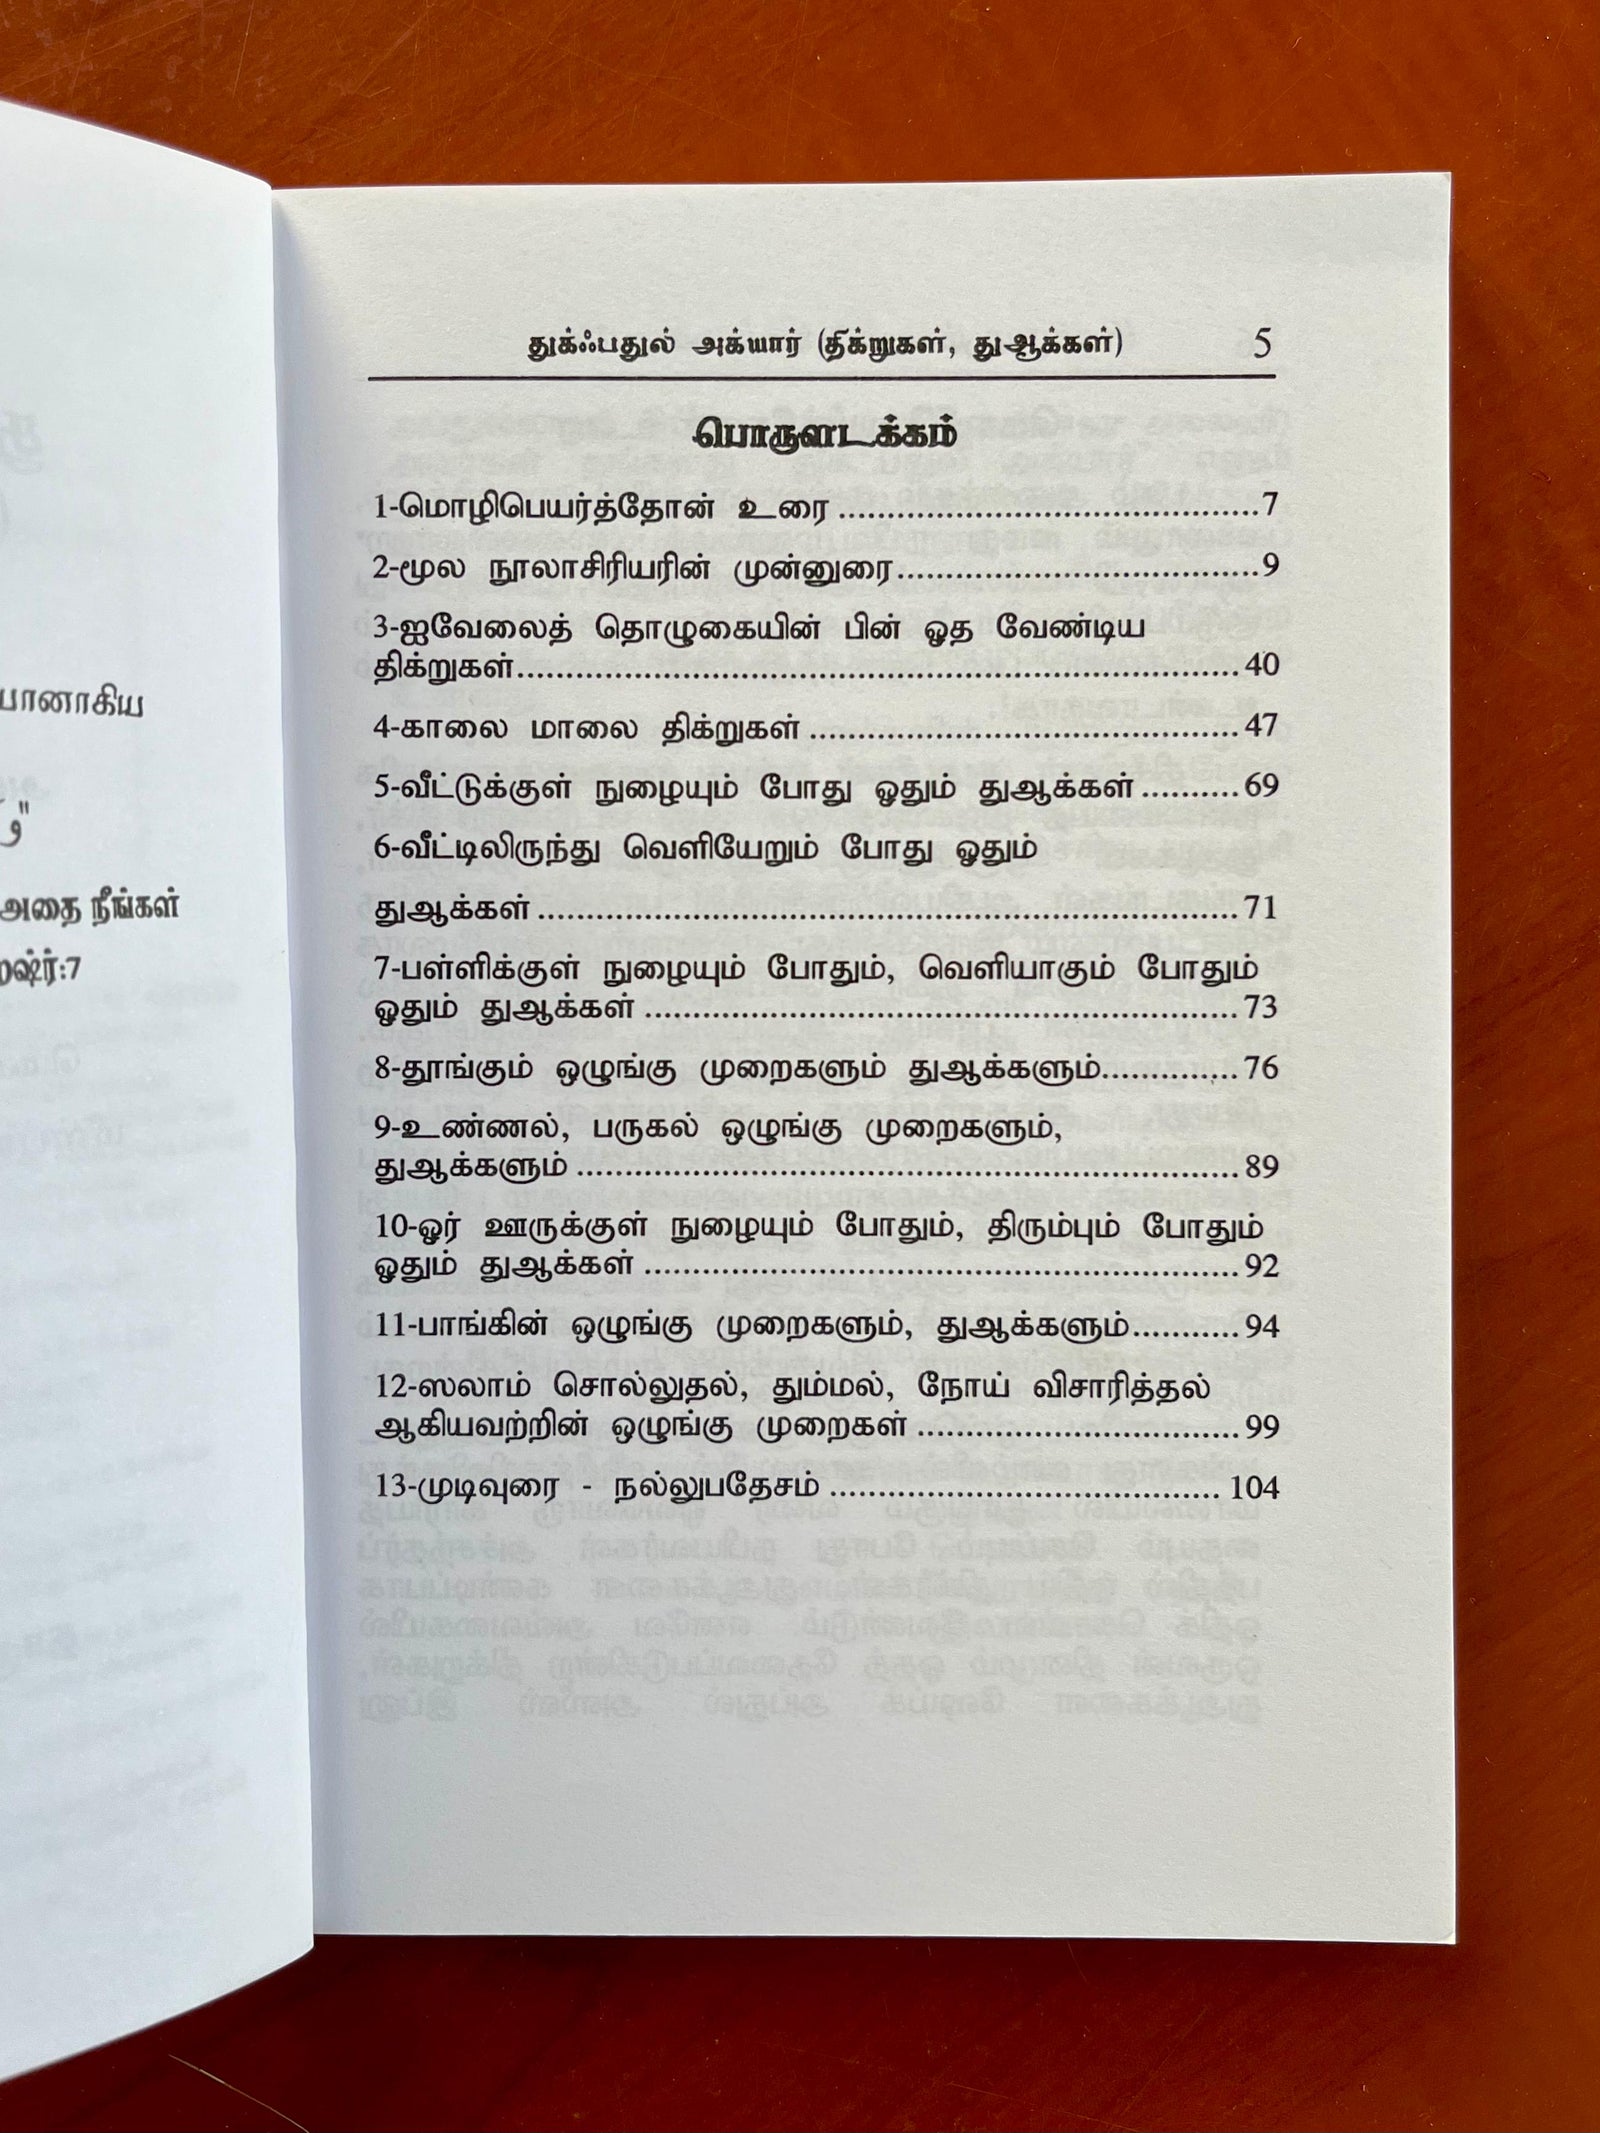 யானாகிய
அதை நீங்கள்
துக்ஃபதுல் அக்யார் (திக்றுகள், துஆக்கள்) 5
பொருளடக்கம்
1-மொழிபெயர்த்தோன் உரை ..........................................7
2-மூல நூலாசிரியரின் முன்னுரை....................................9
3-ஐவேலைத் தொழுகையின் பின் ஓத வேண்டிய
திக்றுகள்..........................................................................40
4-காலை மாலை திக்றுகள் ............................................47
5-வீட்டுக்குள் நுழையும் போது ஓதும் துஆக்கள் ..........69
6-வீட்டிலிருந்து வெளியேறும் போது ஓதும்
துஆக்கள் ........................................................................71
7-பள்ளிக்குள் நுழையும் போதும், வெளியாகும் போதும்
ஓதும் துஆக்கள் .............................................................73
8-தூங்கும் ஒழுங்கு முறைகளும் துஆக்களும்..............76
9-உண்ணல், பருகல் ஒழுங்கு முறைகளும்,
துஆக்களும் ....................................................................89
10-ஓர் ஊருக்குள் நுழையும் போதும், திரும்பும் போதும்
ஓதும் துஆக்கள் .............................................................92
11-பாங்கின் ஒழுங்கு முறைகளும், துஆக்களும்...........94
12-ஸலாம் சொல்லுதல், தும்மல், நோய் விசாரித்தல்
ஆகியவற்றின் ஒழுங்கு முறைகள் .................................99
13-முடிவுரை - நல்லுபதேசம் ........................................ 104